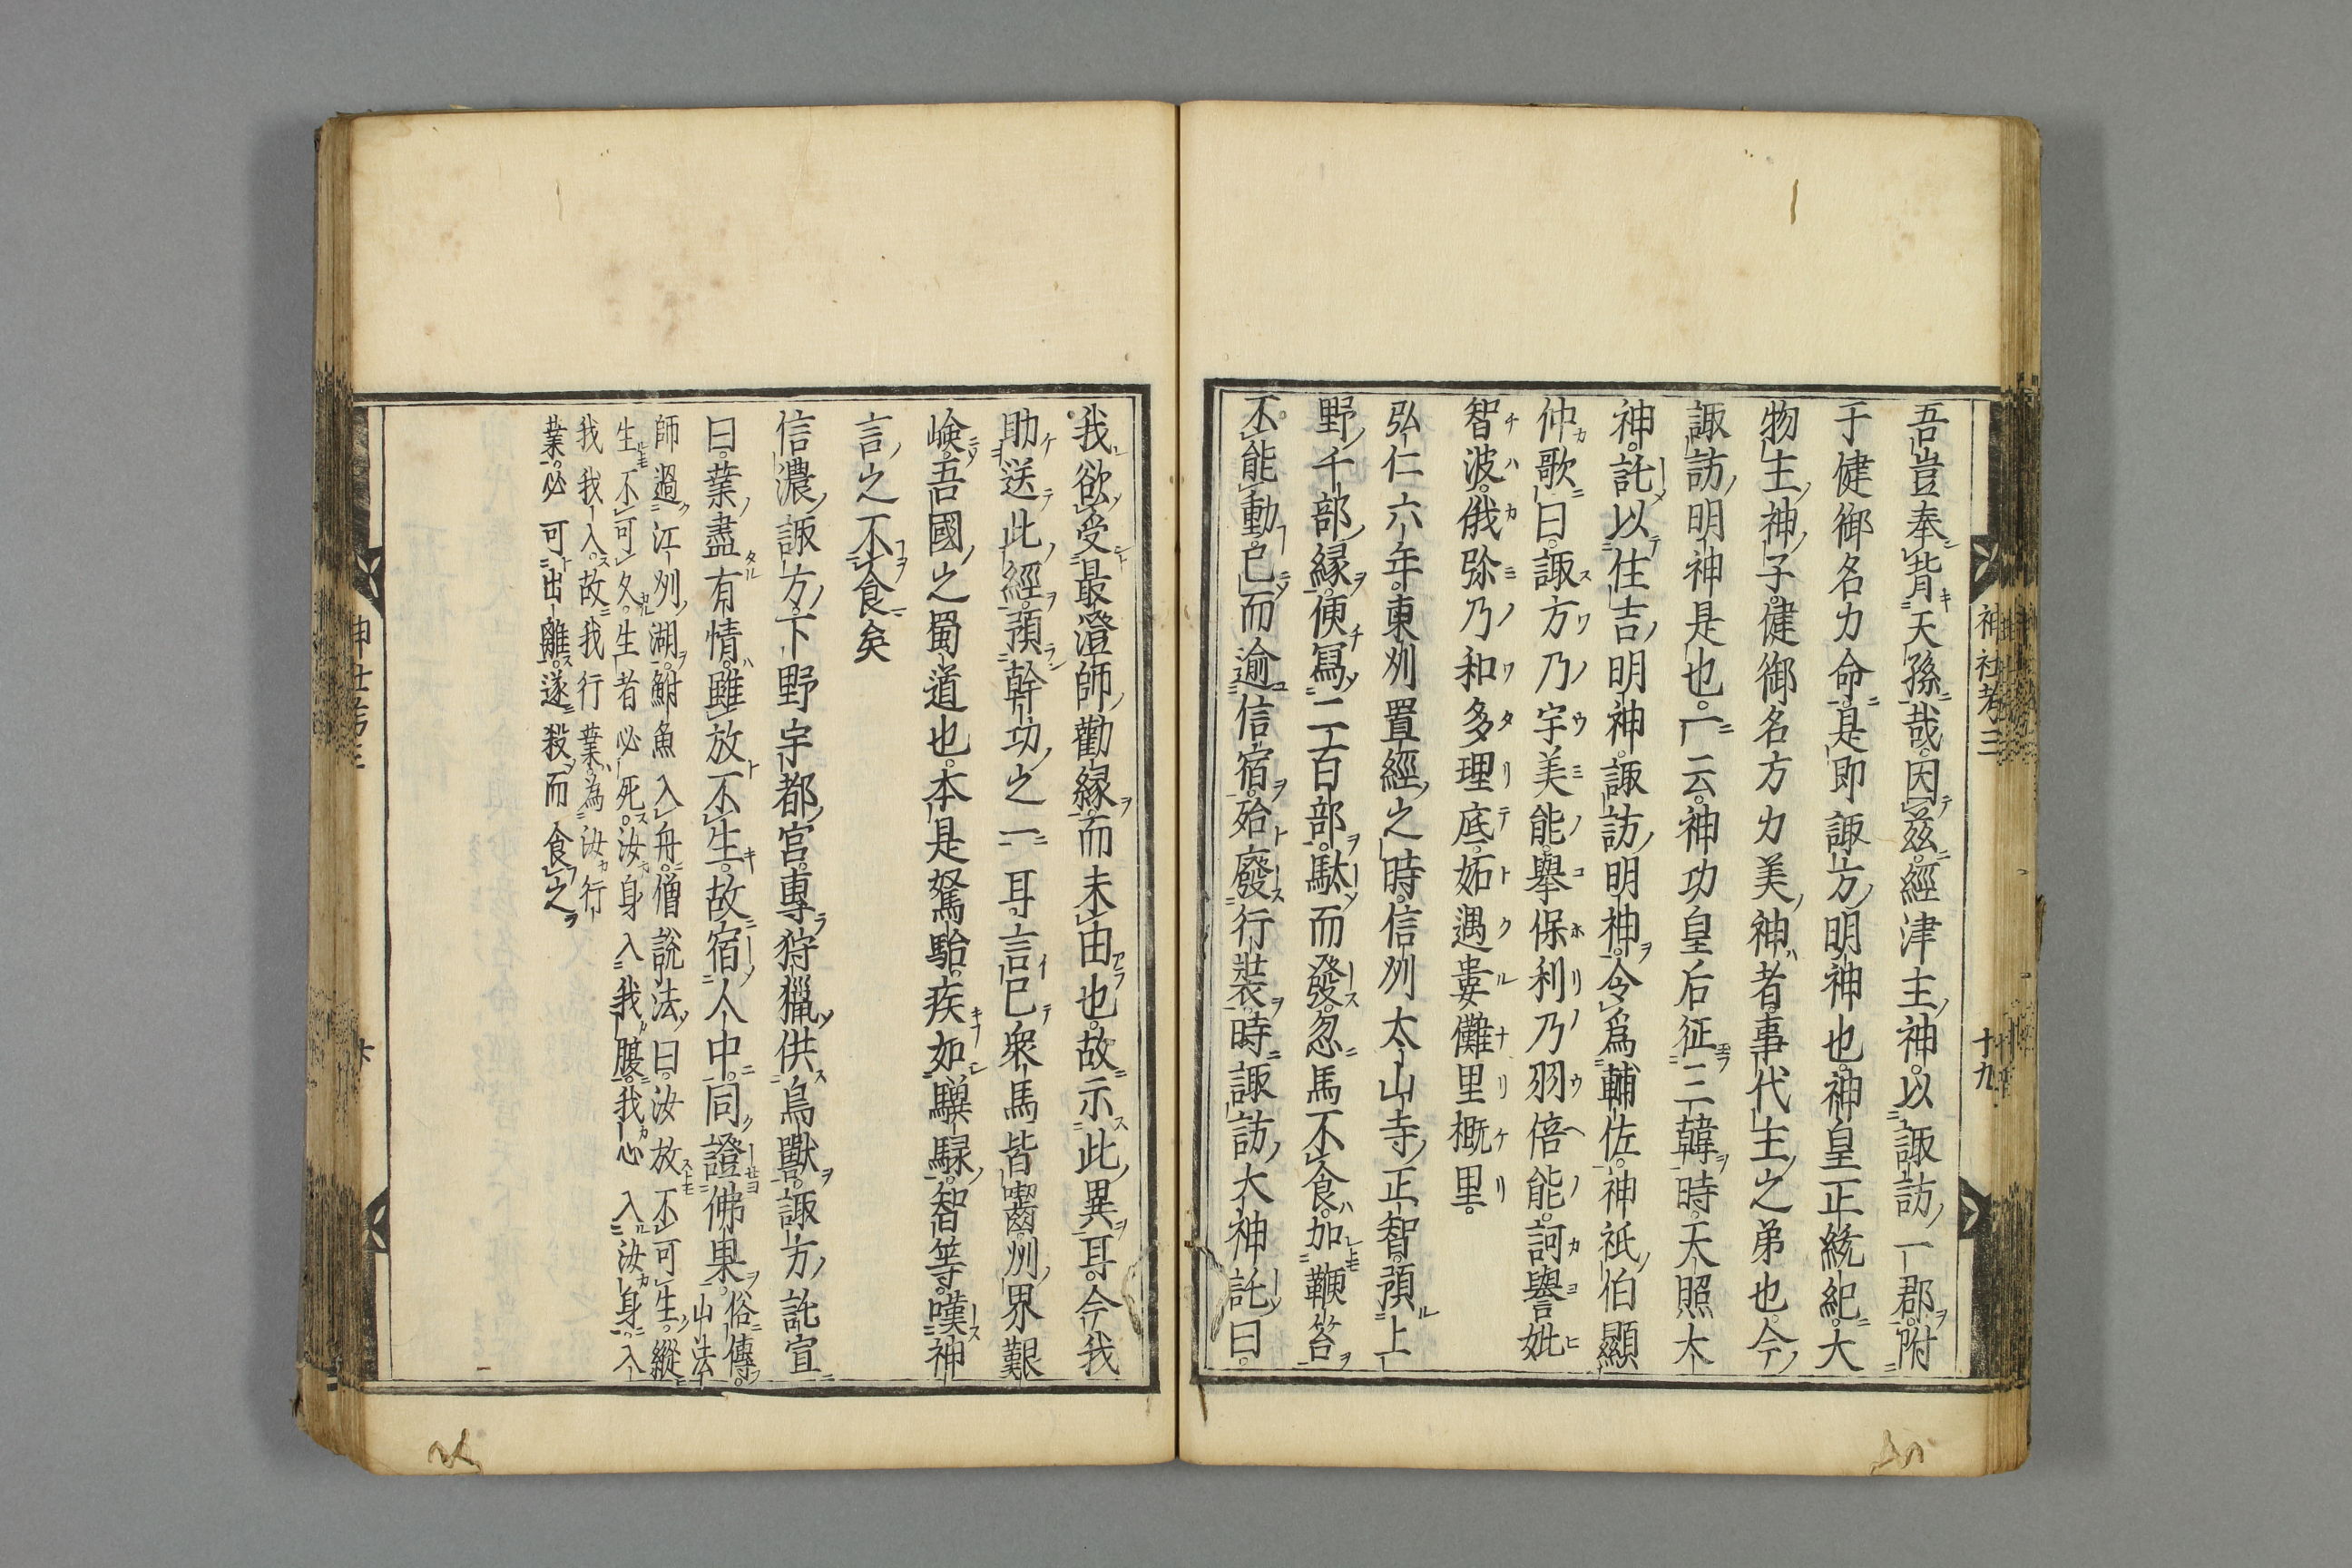 吾豈奉背天孫哉因茲經津主神以諏訪一郡附
于健御名力命是即諏方明神也神皇正統紀大
物主神子健御名方力美神者事代主之弟也今
諏訪明神是也一云神功皇后征三韓時天照大
神託以住吉明神諏訪明神令爲輔佐神祇伯顯
仲歌曰諏方乃宇美能擧保利乃羽倍能訶譽妣
智波俄弥乃和多理底妬遇婁儺里概里
弘仁六年東州置經之時信州大山寺正智預上
野千部縁便冩二百部駄而發忽馬不食加鞭笞
不能動已而逾信宿殆廢行裝時諏訪大神託曰
我欲受最澄師勸縁而未由也故示此異耳今我
助送此經預幹功之一耳言已衆馬皆囓齒州界艱
嶮吾國之蜀道也本是駑駘疾如驥騄智等嘆神
言之不食矣
信濃諏方下野宇都宮專狩獵供鳥獸諏方託宣
曰業盡有情雖放不生故宿人中同證佛果俗傳山法
師過江州湖鮒魚入舟僧説法曰汝放不可生縱
生不可久生者必死汝身入我腹我心入汝身入
我我入故我行業為汝行
業必可出離遂殺而食之
神社考三
十九